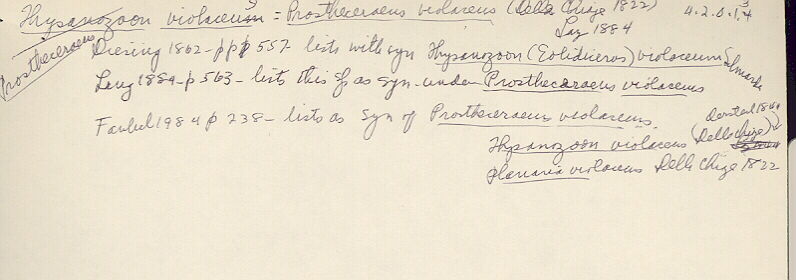 Thysanozoon violaceus = Prostheceraeus violaceus (Delle Chiaje 1822)
Lang 1884
4.2.0.1.4
Prostheceraeus
Diesing 1862 - pp 557 - lists with syn Thysanozoon (Eolidiceros) violaceum
Lang 1884 - p 563 - lists this sp as syn. under Prostheceraeus violaceus
Faubel 1984 p 238 - lists as syn of Prostheceraeus violaceus.
Thysanozoon violaceus (Delle Chiaje)
Planaria violaceus Delle Chiaje 1822